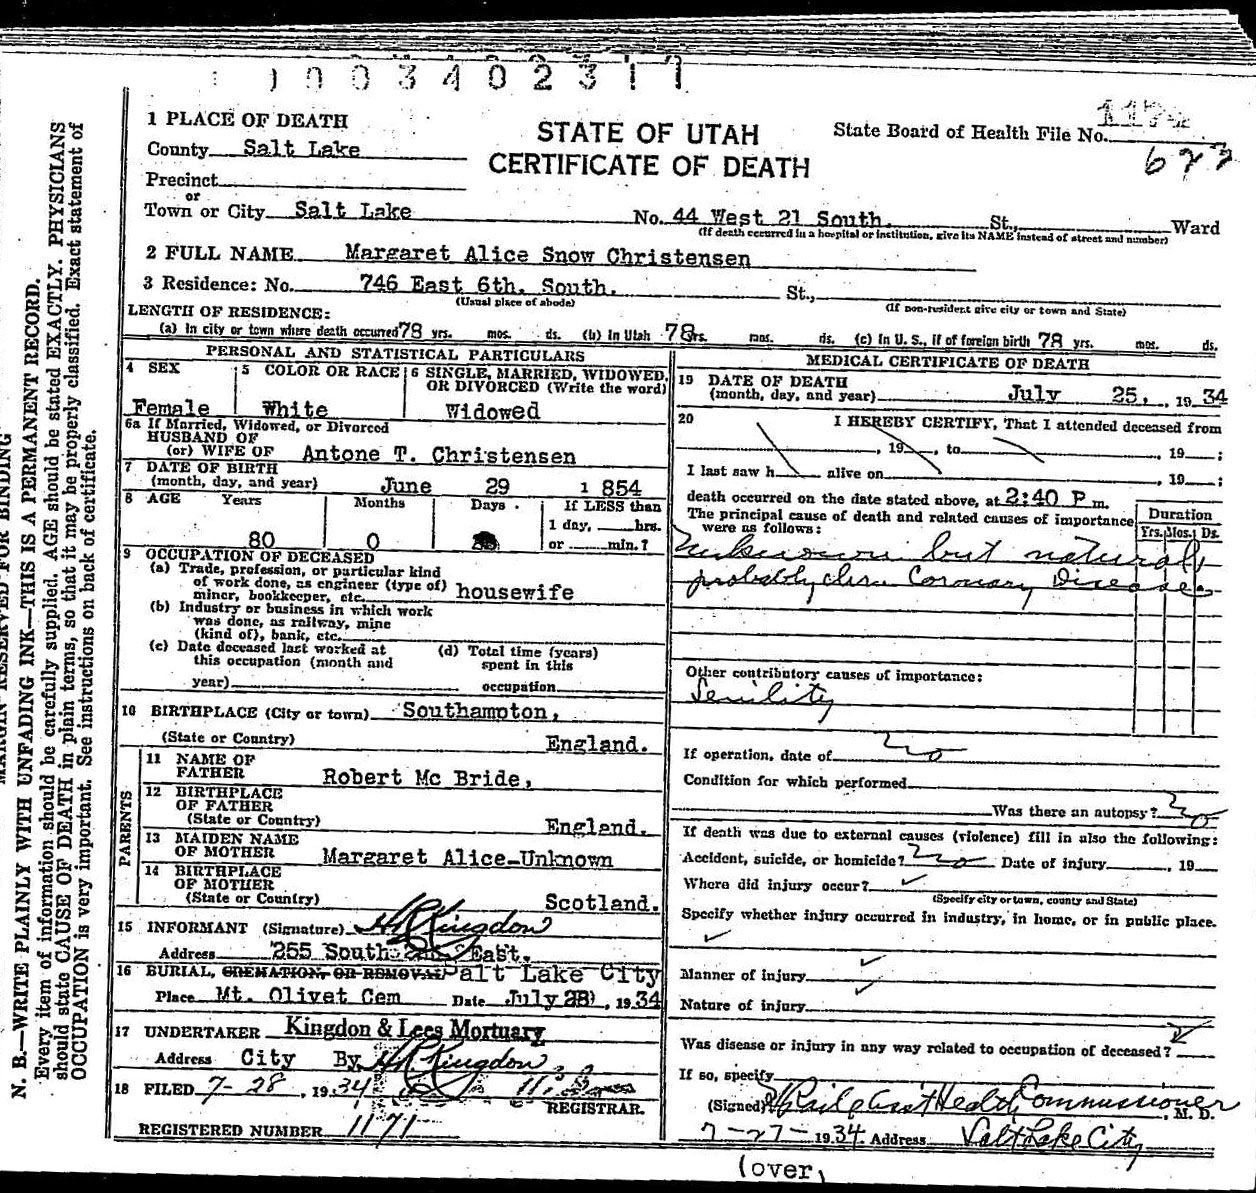 1003402317
1 PLACE OF DEATH
STATE OF UTAH
CERTIFICATE OF DEATH
State Board of Health File No. 1174
677
County Salt Lake
Precinct
or
Town or City Salt Lake No. 44 West 21 South. St., Ward
(If death occurred in a hospital or institution, give its NAME instead of street and number)
2 FULL NAME Margaret Alice Snow Christensen
3 Residence: No. 746 East 6th. South. St.,
(Usual place of abode) (If non-resident give city or town and State)
LENGTH OF RESIDENCE:
(a) In city or town where death occurred 78 yrs. mos. ds. (b) In Utah 78 yrs. mos. ds. (c) In U. S., if of foreign birth 78 yrs. mos. ds.
PERSONAL AND STATISTICAL PARTICULARS
4 SEX 5 COLOR OR RACE 6 SINGLE, MARRIED, WIDOWED, OR DIVORCED (Write the word)
Female White Widowed
6a If Married, Widowed, or Divorced
HUSBAND OF
(or) WIFE OF Antone T. Christensen
7 DATE OF BIRTH
(month, day, and year) June 29 1854
8 AGE Years Months Days If LESS than
1 day, hrs.
80 0 or min.?
9 OCCUPATION OF DECEASED
(a) Trade, profession, or particular kind
of work done, as engineer (type of)
miner, bookkeeper, etc. housewife
(b) Industry or business in which work
was done, as railway, mine
(kind of), bank, etc.
(c) Date deceased last worked at
this occupation (month and
year)
(d) Total time (years)
spent in this
occupation
10 BIRTHPLACE (City or town) Southampton,
(State or Country) England.
PARENTS
11 NAME OF
FATHER Robert Mc Bride,
12 BIRTHPLACE
OF FATHER
(State or Country) England.
13 MAIDEN NAME
OF MOTHER Margaret Alice-Unknown
14 BIRTHPLACE
OF MOTHER
(State or Country) Scotland.
15 INFORMANT (Signature) Kingdon
Address 255 South 2nd East.
16 BURIAL, CREMATION, OR REMOVAL Salt Lake City
Place Mt. Olivet Cem Date July 28, 1934
17 UNDERTAKER Kingdon & Lees Mortuary
Address City By Kingdon
18 FILED 7-28, 1934
REGISTRAR.
REGISTERED NUMBER 1171
MEDICAL CERTIFICATE OF DEATH
19 DATE OF DEATH
(month, day, and year) July 25, 1934
20 I HEREBY CERTIFY, That I attended deceased from
, 19 , to , 19 ;
I last saw h alive on , 19 ;
death occurred on the date stated above, at 2:40 P m.
The principal cause of death and related causes of importance
were as follows:
Duration
Yrs. Mos. Ds.
Unknown but natural
probably Coronary Disease
Other contributory causes of importance:
Senility
If operation, date of no
Condition for which performed
Was there an autopsy? no
If death was due to external causes (violence) fill in also the following:
Accident, suicide, or homicide? no Date of injury , 19
Where did injury occur?
(Specify city or town, county and State)
Specify whether injury occurred in industry, in home, or in public place.
Manner of injury
Nature of injury
Was disease or injury in any way related to occupation of deceased?
If so, specify
(Signed) Health Commissioner, M. D.
7-27-1934 Address Salt Lake City
(over)
MARGIN RESERVED FOR BINDING
N. B.—WRITE PLAINLY WITH UNFADING INK—THIS IS A PERMANENT RECORD.
Every item of information should be carefully supplied. AGE should be stated EXACTLY. PHYSICIANS
should state CAUSE OF DEATH in plain terms, so that it may be properly classified. Exact statement of
OCCUPATION is very important. See instructions on back of certificate.